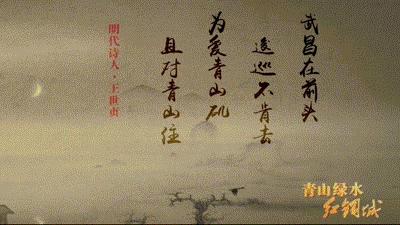 武昌在前头
逡巡不肯去
为爱青山矶
且对青山住
明代诗人·王世贞
青山绿水
红钢城